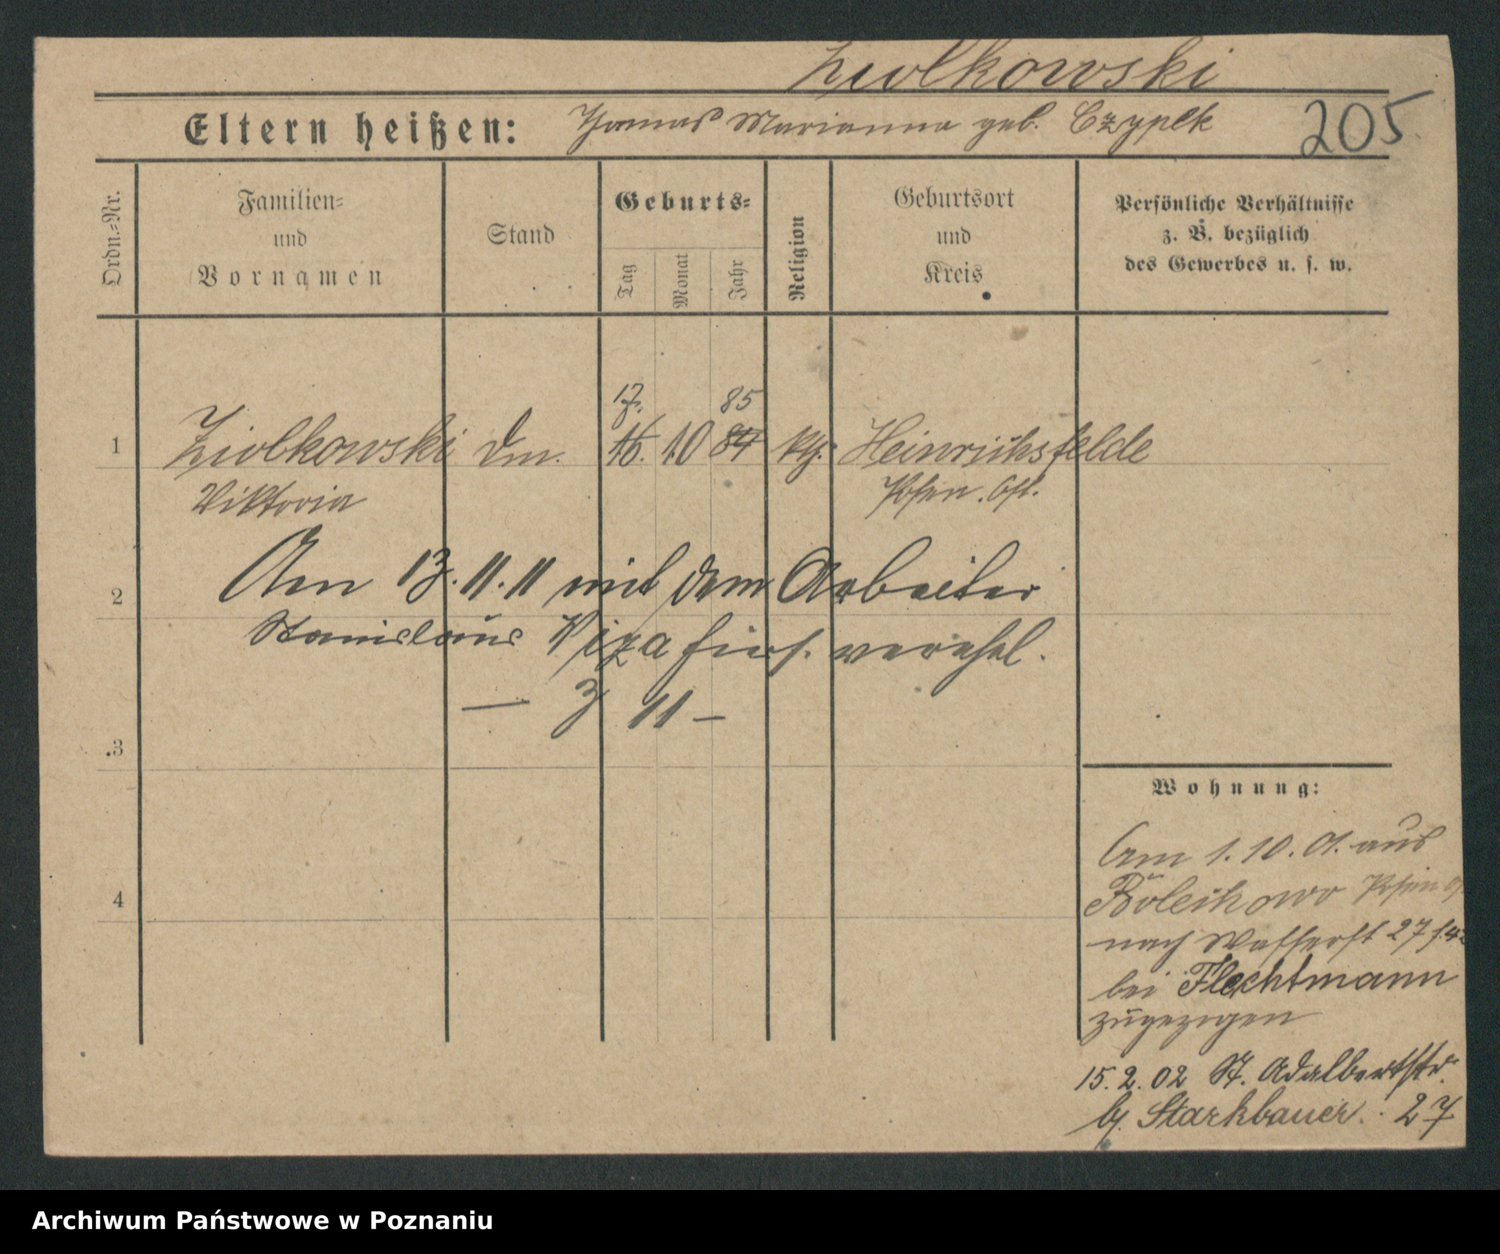 Ziolkowski
Eltern heißen: Thomas Marianna geb. Czyplk
205
Ordn.-Nr.
Familien-
und
Vornamen
Stand
Geburts-
Tag
Monat
Jahr
Religion
Geburtsort
und
Kreis
Persönliche Verhältnisse
z. B. bezüglich
des Gewerbes u. s. w.
17. 85
1 Ziolkowski Dm. 16. 10 84 ktg. Heinrichsfelde
Viktoria Posen. Ost.
2 Am 13.11.11 mit dem Arbeiter
Stanislaus Piza hier. verehel.
— 3 11 —
3
4
Wohnung:
Am 1.10.01. aus
Bolechowo Posen O
nach Wasserst 27
bei Flechtmann
zugezogen
15.2.02 St. Adalbertstr.
b. Starkbauer. 27
Archiwum Państwowe w Poznaniu